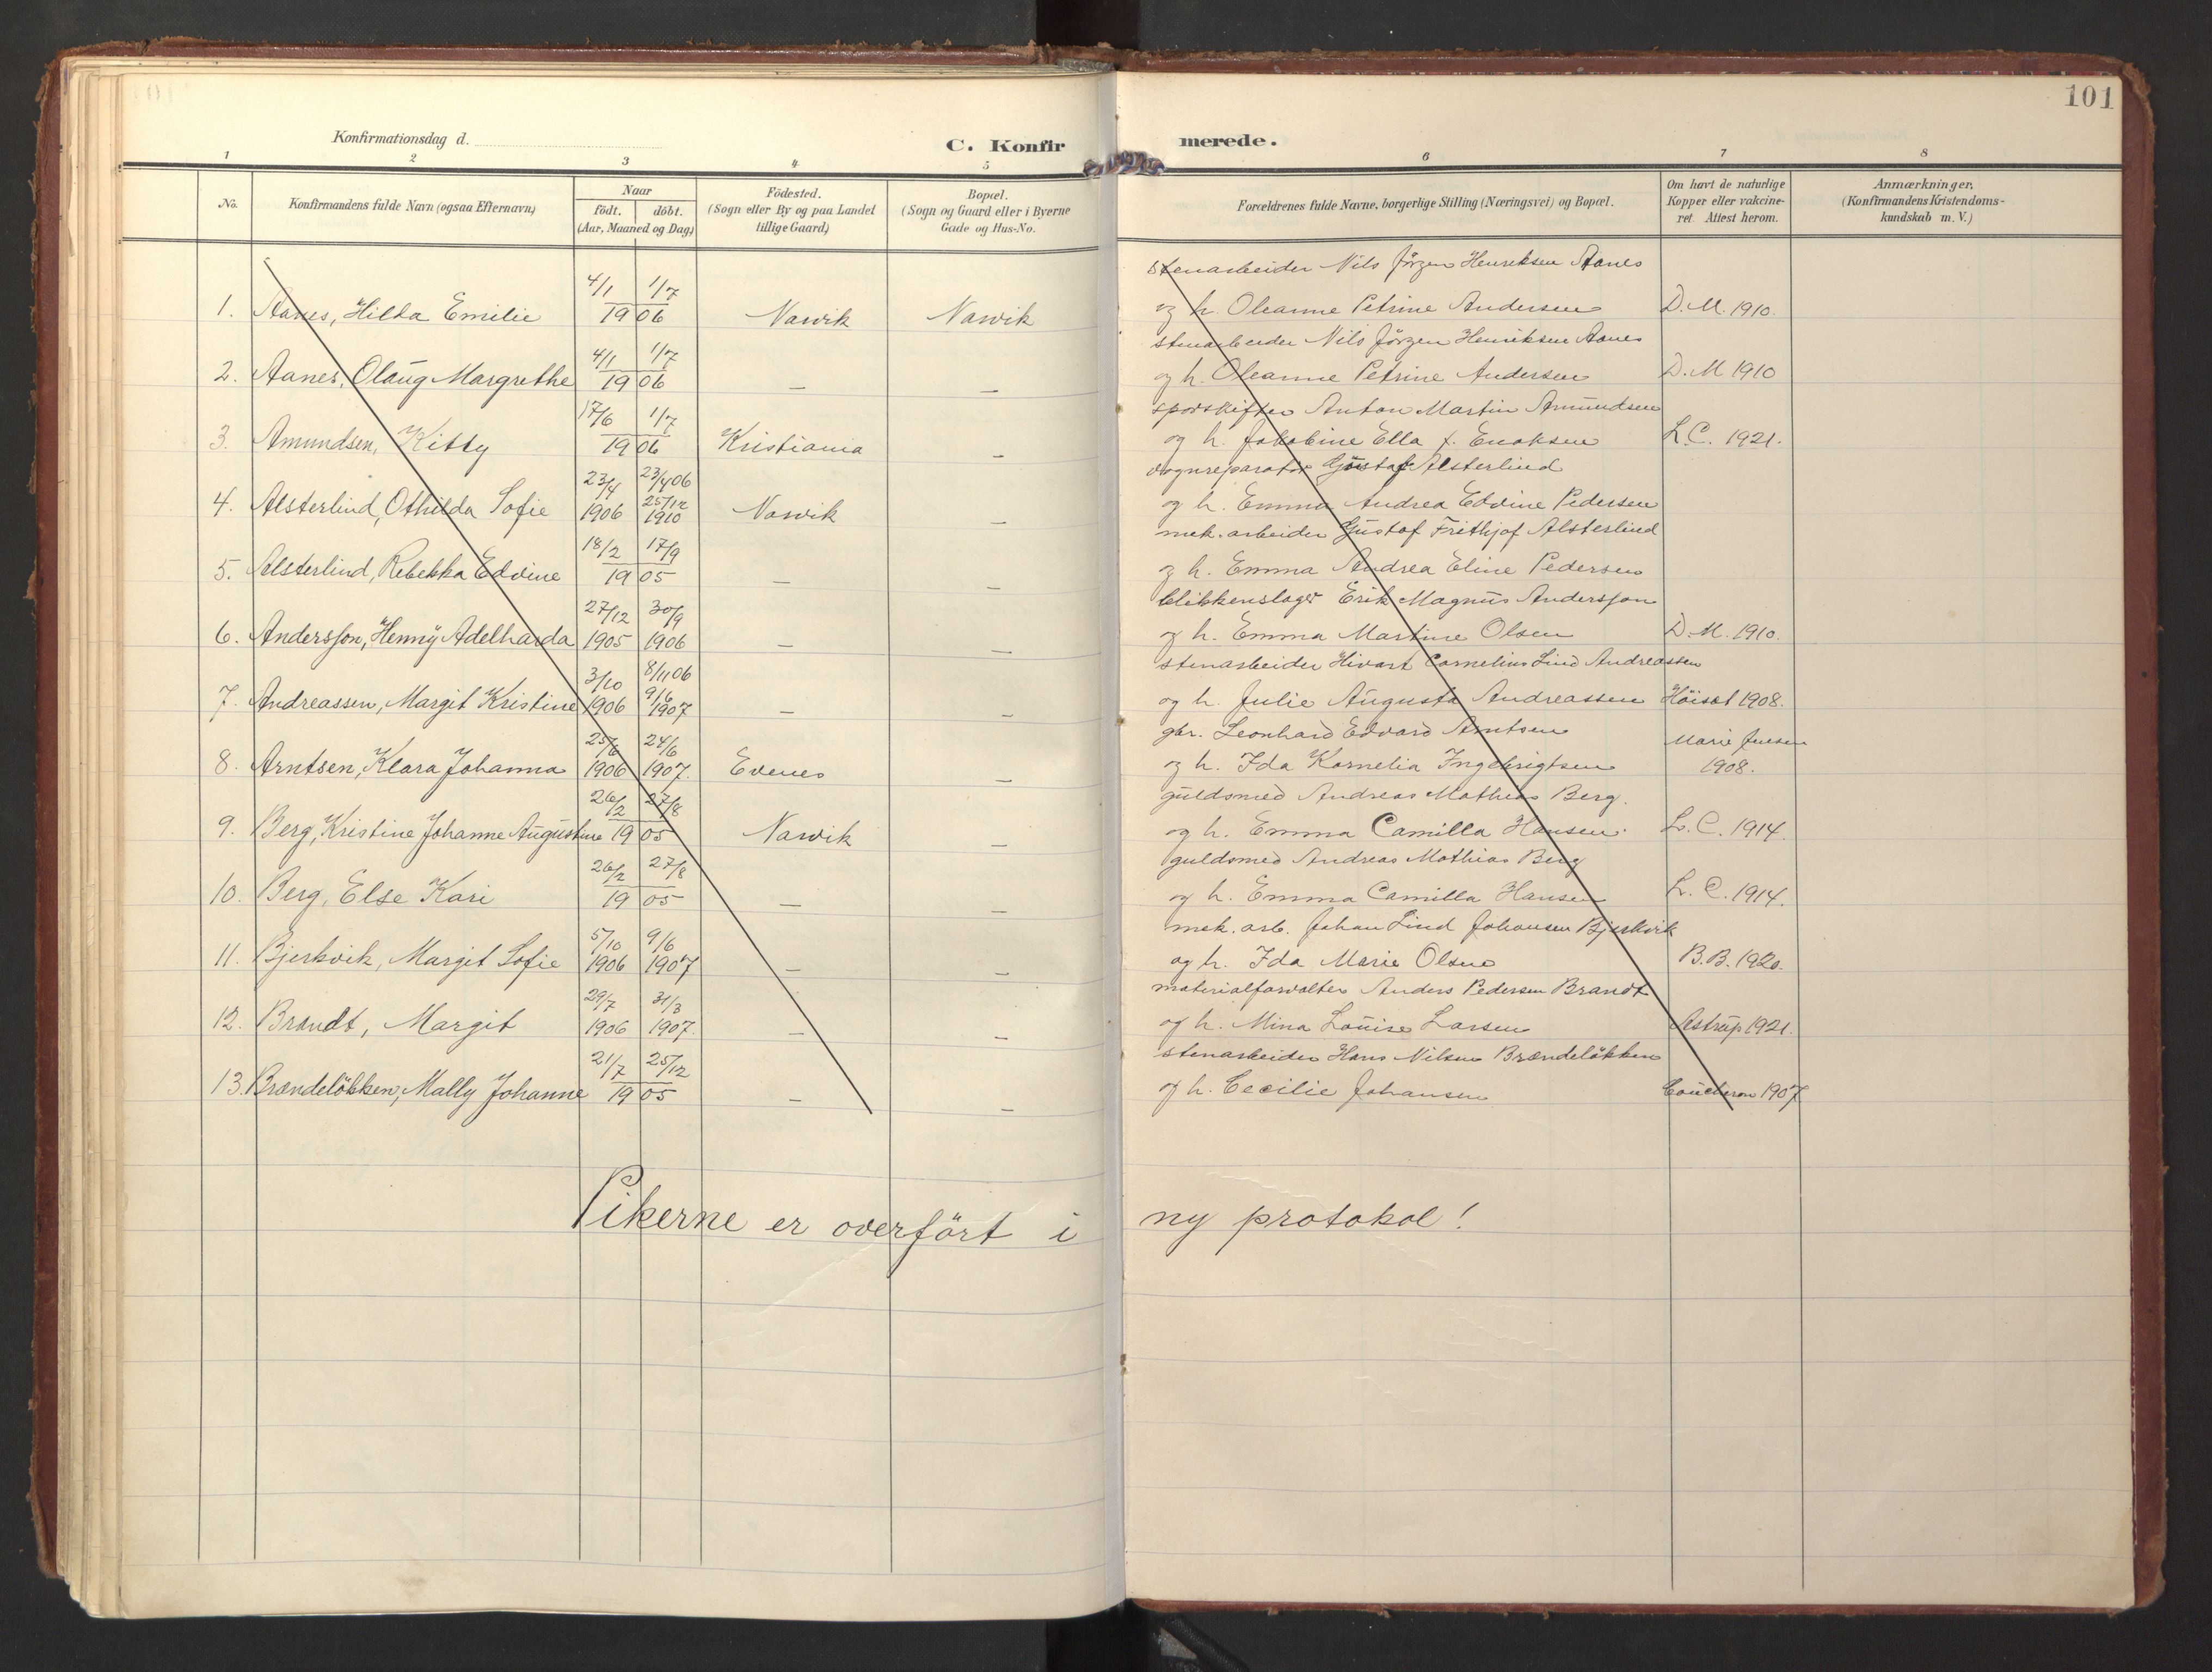 101
Konfirmationsdag d.
C. Konfirmerede.
1 2 3 4 5 6 7 8
No.
Konfirmandens fulde Navn (ogsaa Efternavn)
Naar
födt. döbt.
(Aar, Maaned og Dag)
Födested.
(Sogn eller By og paa Landet
tillige Gaard)
Bopæl.
(Sogn og Gaard eller i Byerne
Gade og Hus-No.
Forældrenes fulde Navne, borgerlige Stilling (Næringsvei) og Bopæl.
Om havt de naturlige
Kopper eller vakcine-
ret. Attest herom.
Anmærkninger,
(Konfirmandens Kristendoms-
kundskab m. V.)
stenarbeider Nils Jörgen Henriksen Aanes
1. Aanes, Hilda Emilie 4/1 1/7 1906 Narvik Narvik og h. Oleanne Petrine Andersen D. M. 1910.
stenarbeider Nils Jörgen Henriksen Aanes
2. Aanes, Olaug Margrethe 4/1 1/7 1906 — — og h. Oleanne Petrine Andersen D. M 1910
sporskifter Anton Martin Amundsen
3. Amundsen, Kitty 17/6 1/7 1906 Kristiania — og h. Jakobine Ella f. Enoksen L. C. 1921.
vognreparatör Gustaf Alsterlind
4. Alsterlind, Othilda Sofie 23/4 1906 23/4 06 25/12 1910 Narvik — og h. Emma Andrea Edvine Pedersen
mek. arbeider Gustaf Frithjof Alsterlind
5. Alsterlind, Rebekka Edvine 18/2 17/9 1905 — — og h. Emma Andrea Eline Pedersen
blikkenslager Erik Magnus Andersson
6. Andersson, Henny Adelharda 27/12 1905 30/9 1906 — — og h. Emma Martine Olsen D. M. 1910.
stenarbeider Hivart Cornelius Lind Andreassen
7. Andreassen, Margit Kristine 3/10 1906 8/11 06 9/6 1907 — — og h. Julie Augusta Andreassen Höisæt 1908.
gbr. Leonhard Edvard Arntsen
8. Arntsen, Klara Johanna 25/6 1906 24/6 1907. Evenes — og h. Ida Kornelia Ingebrigtsen Marie Juesen 1908.
guldsmed Andreas Mathias Berg.
9. Berg, Kristine Johanne Augustine 26/2 27/8 1905 Narvik — og h. Emma Camilla Hansen. L. C. 1914.
guldsmed Andreas Mathias Berg
10. Berg, Else Kari 26/2 27/8 1905 — — og h. Emma Camilla Hansen L. C. 1914.
mek. arb. Johan Lind Johansen Bjerkvik
11. Bjerkvik, Margit Sofie 5/10 1906 9/6 1907 — — og h. Ida Marie Olsen B. B. 1920.
materialforvalter Anders Pedersen Brandt
12. Brandt, Margit 29/7 1906 31/3 1907. — — og h. Mina Louise Larsen Astrup 1921.
stenarbeider Hans Nilsen Brændelökken
13. Brændelökken, Mally Johanne 21/7 25/12 1905 — — og h. Cecilie Johansen Coucheron 1907
Pikerne er overfört i ny protokol!